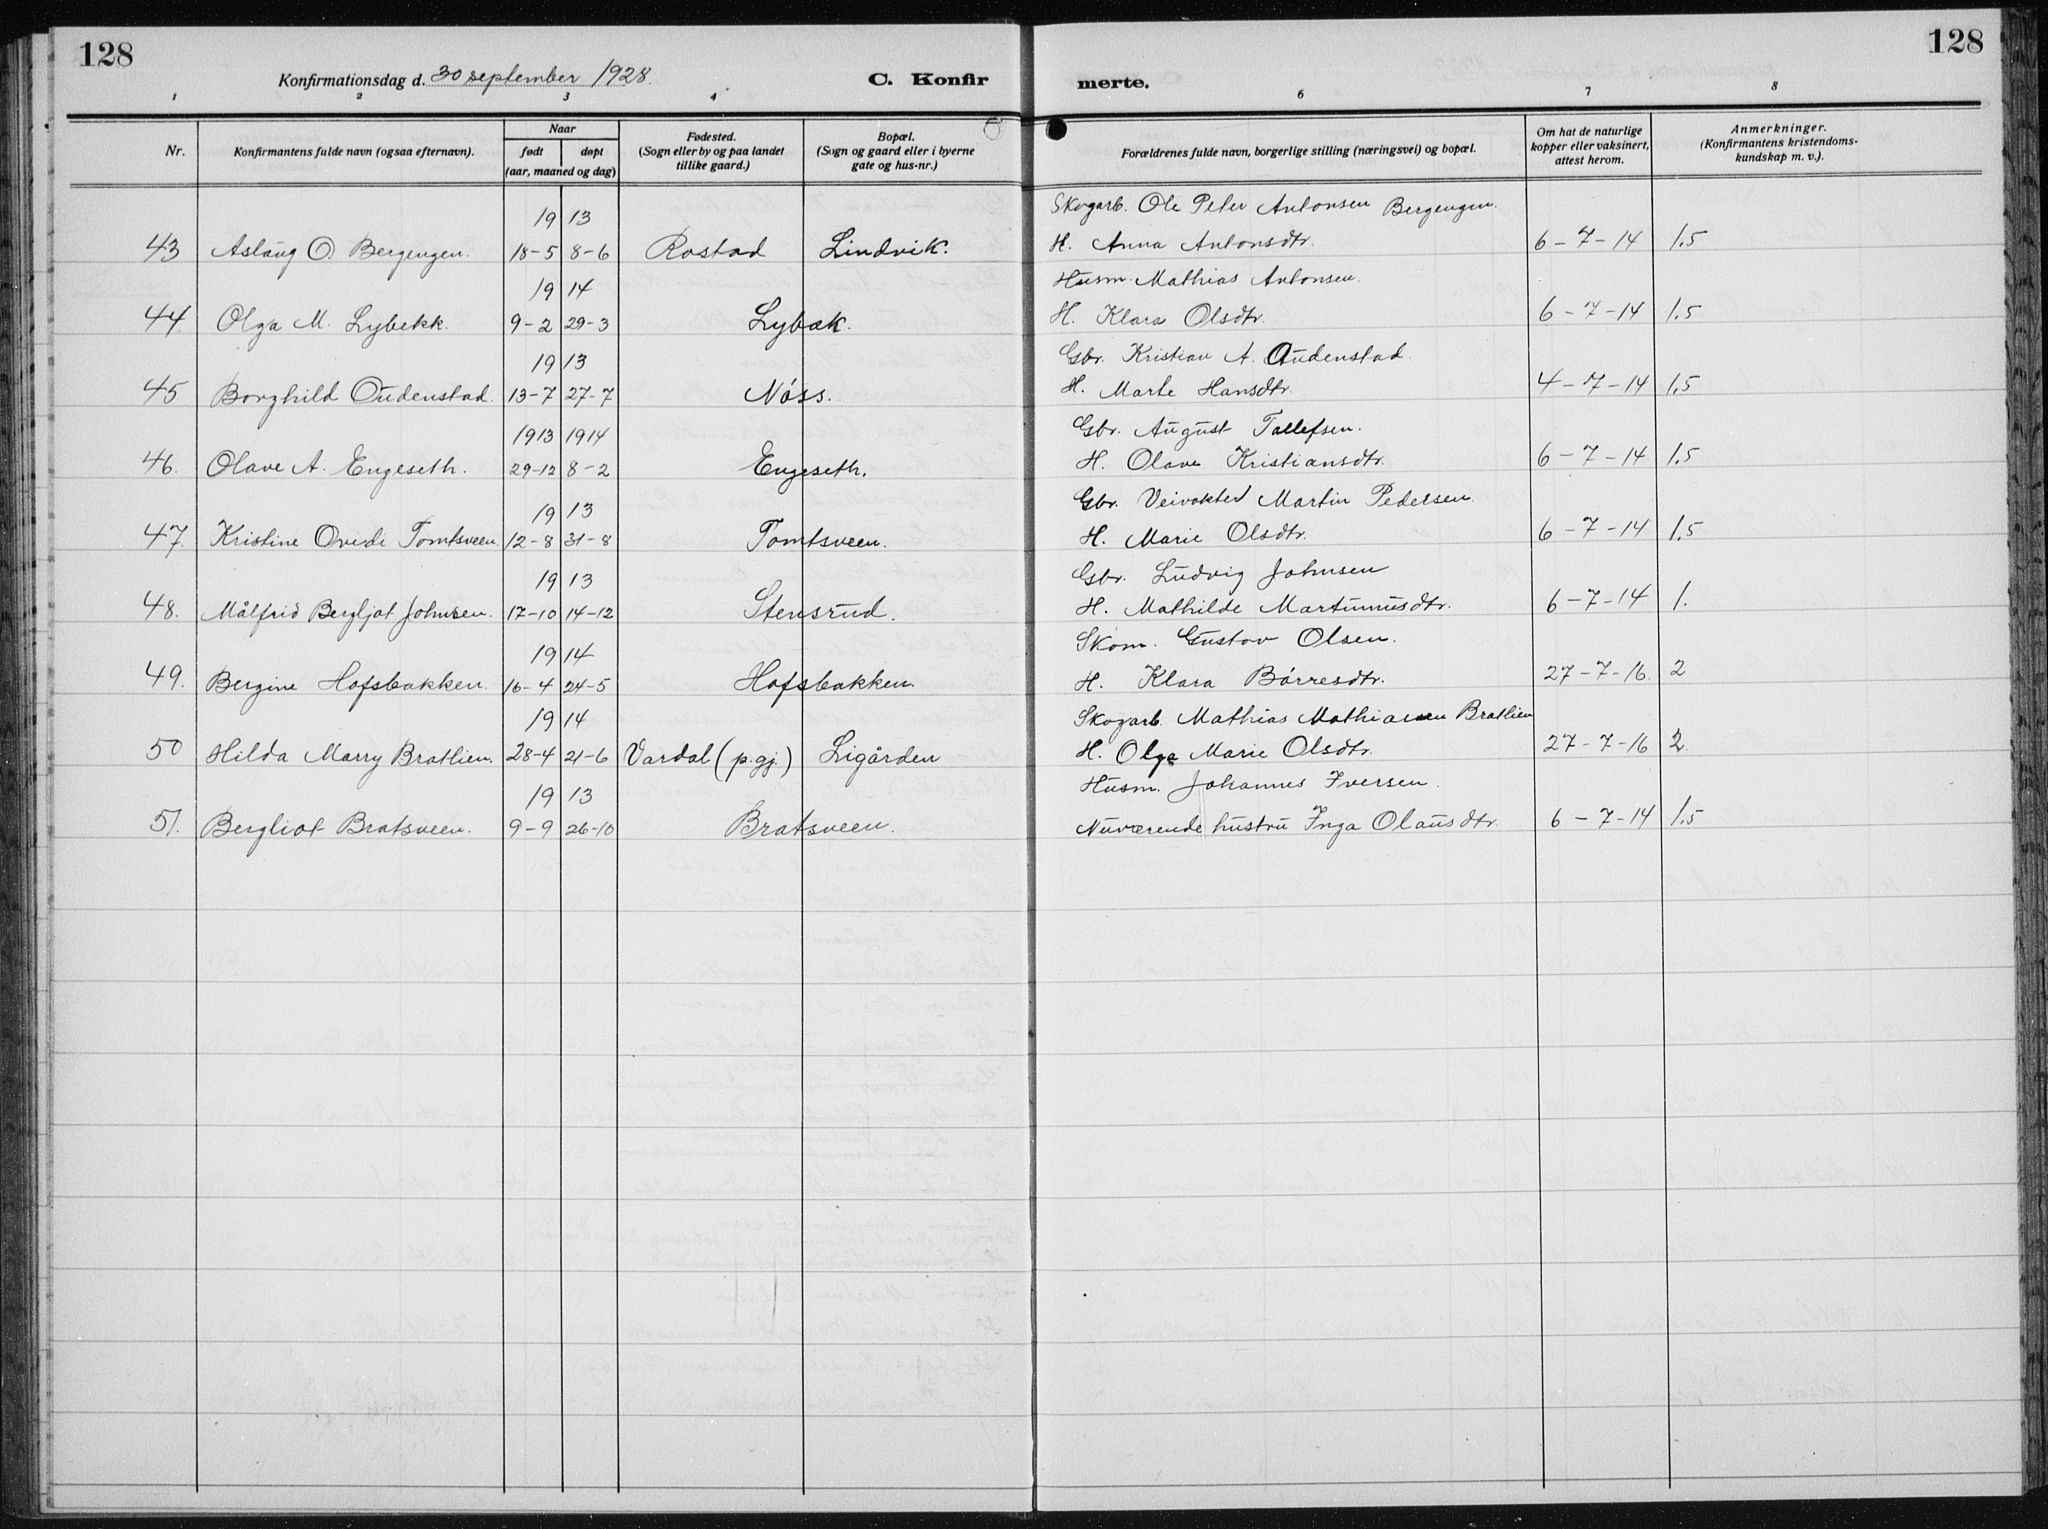 128
128
Konfirmationsdag d. 30 september 1928.
C. Konfir
merte.
1 2 3 4 6 7 8
Nr.
Konfirmantens fulde navn (ogsaa efternavn).
Naar
født
døpt
(aar, maaned og dag)
Fødested.
(Sogn eller by og paa landet
tillike gaard.)
Bopæl.
(Sogn og gaard eller i byerne
gate og hus-nr.)
5
Forældrenes fulde navn, borgerlige stilling (næringsvei) og bopæl.
Om hat de naturlige
kopper eller vaksinert,
attest herom.
Anmerkninger.
(Konfirmantens kristendoms-
kundskap m. v.).
19 13 Skogarb. Ole Peter Antonsen Bergengen.
43 Aslaug O. Bergengen. 18-5 8-6 Rostad Lindvik. H. Anna Antonsdtr. 6-7-14 1.5
19 14 Husm. Mathias Antonsen.
44. Olga M. Lybekk. 9-2 29-3 Lybæk. H. Klara Olsdtr. 6-7-14 1.5
19 13 Gbr. Kristian A. Oudenstad.
45 Borghild Oudenstad. 13-7 27-7 Nóss. H. Marte Hansdtr. 4-7-14 1.5
1913 1914 Gbr. August Tollefsen.
46. Olave A. Engeseth. 29-12 8-2 Engeseth. H. Olave Kristiansdtr. 6-7-14 1.5
19 13 Gbr. Veivokter Martin Pedersen.
47. Kristine Ovidi Tomtsveen. 12-8 31-8 Tomtsveen. H. Marie Olsdtr. 6-7-14 1.5
19 13 Gbr. Ludvig Johnsen
48. Målfrid Bergljot Johnsen. 17-10 14-12 Stensrud. H. Mathilde Martinusdtr. 6-7-14 1.
19 14 Skom. Gustav Olsen.
49. Bergine Hofsbakken. 16-4 24-5 Hofsbakken. H. Klara Børresdtr. 27-7-16. 2
19 14 Skogarb. Mathias Mathiassen Bratlien
50 Hilda Marry Bratlien. 28-4 21-6 Vardal (p.gj.) Ligården H. Olga Marie Olsdtr. 27-7-16 2.
19 13 Husm. Johannes Iversen.
51. Bergliot Bratsveen. 9-9 26-10 Bratsveen. Nuværende hustru Inga Olausdtr. 6-7-14 1.5